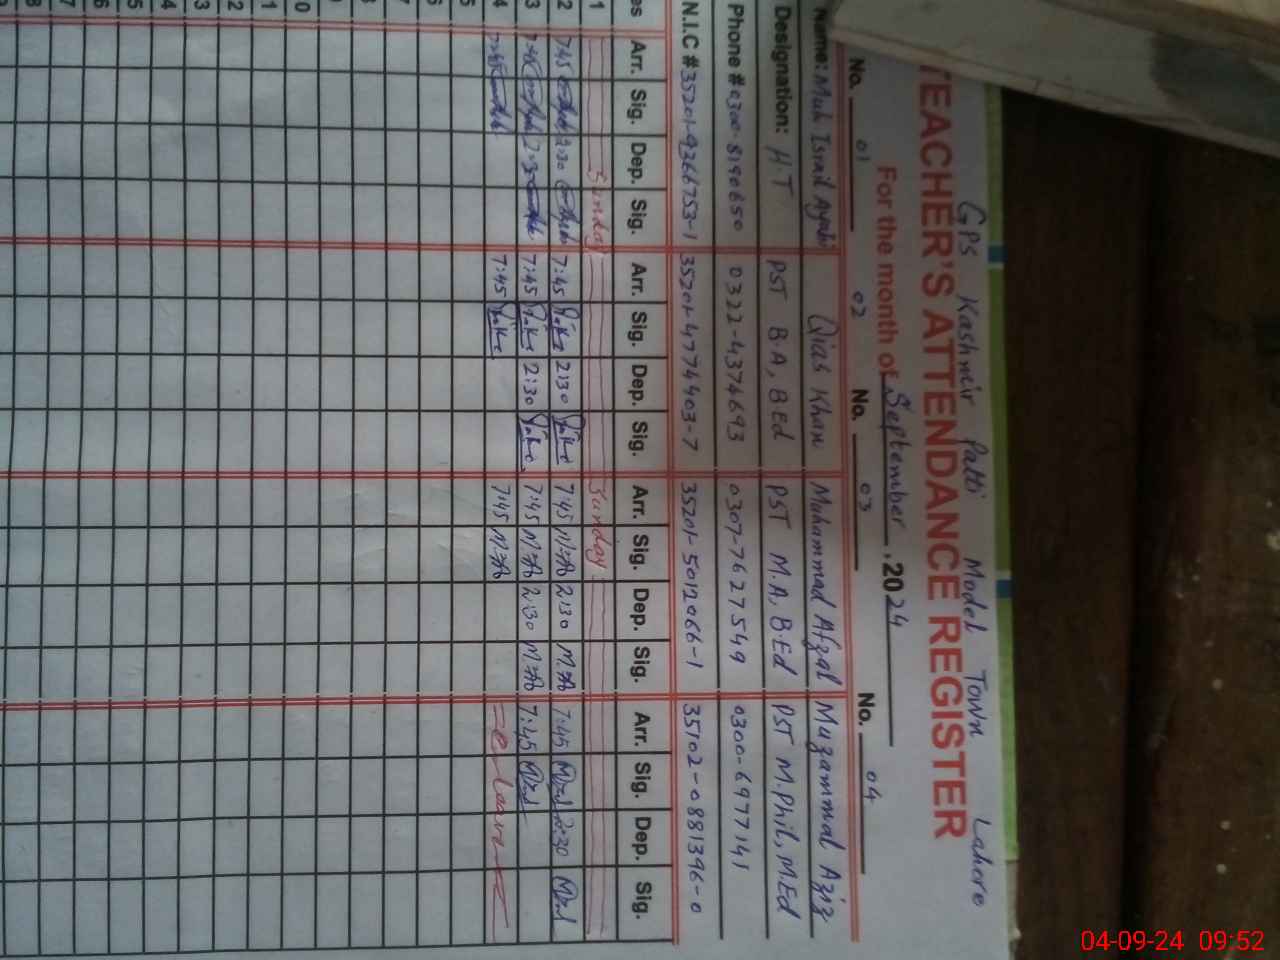 GPS Kashmir Patti Model Town Lahore
TEACHER'S ATTENDANCE REGISTER
For the month of September, 2024
No. 01 02 No. 03 No. 04
Name: Muh Israil Qias Khan Muhammad Afzal Muzammal Aziz
Designation: H.T PST B.A, B.Ed PST M.A, B.Ed PST M.Phil, M.Ed
Phone # 0300-8190650 0322-4374693 0307-7627549 0300-6977141
N.I.C # 35201-9366753-1 35201-4774403-7 35201-5012066-1 35102-0881396-0
es Arr. Sig. Dep. Sig. Arr. Sig. Dep. Sig. Arr. Sig. Dep. Sig. Arr. Sig. Dep. Sig.
1 Sunday Sunday
2 7:45 2:30 7:45 2:30 7:45 2:30 7:45 2:30
3 7:45 2:30 7:45 2:30 7:45 2:30 7:45
4 7:45 7:45 7:45 leave
5
6
7
8
9
0
1
2
3
4
5
6
7
8